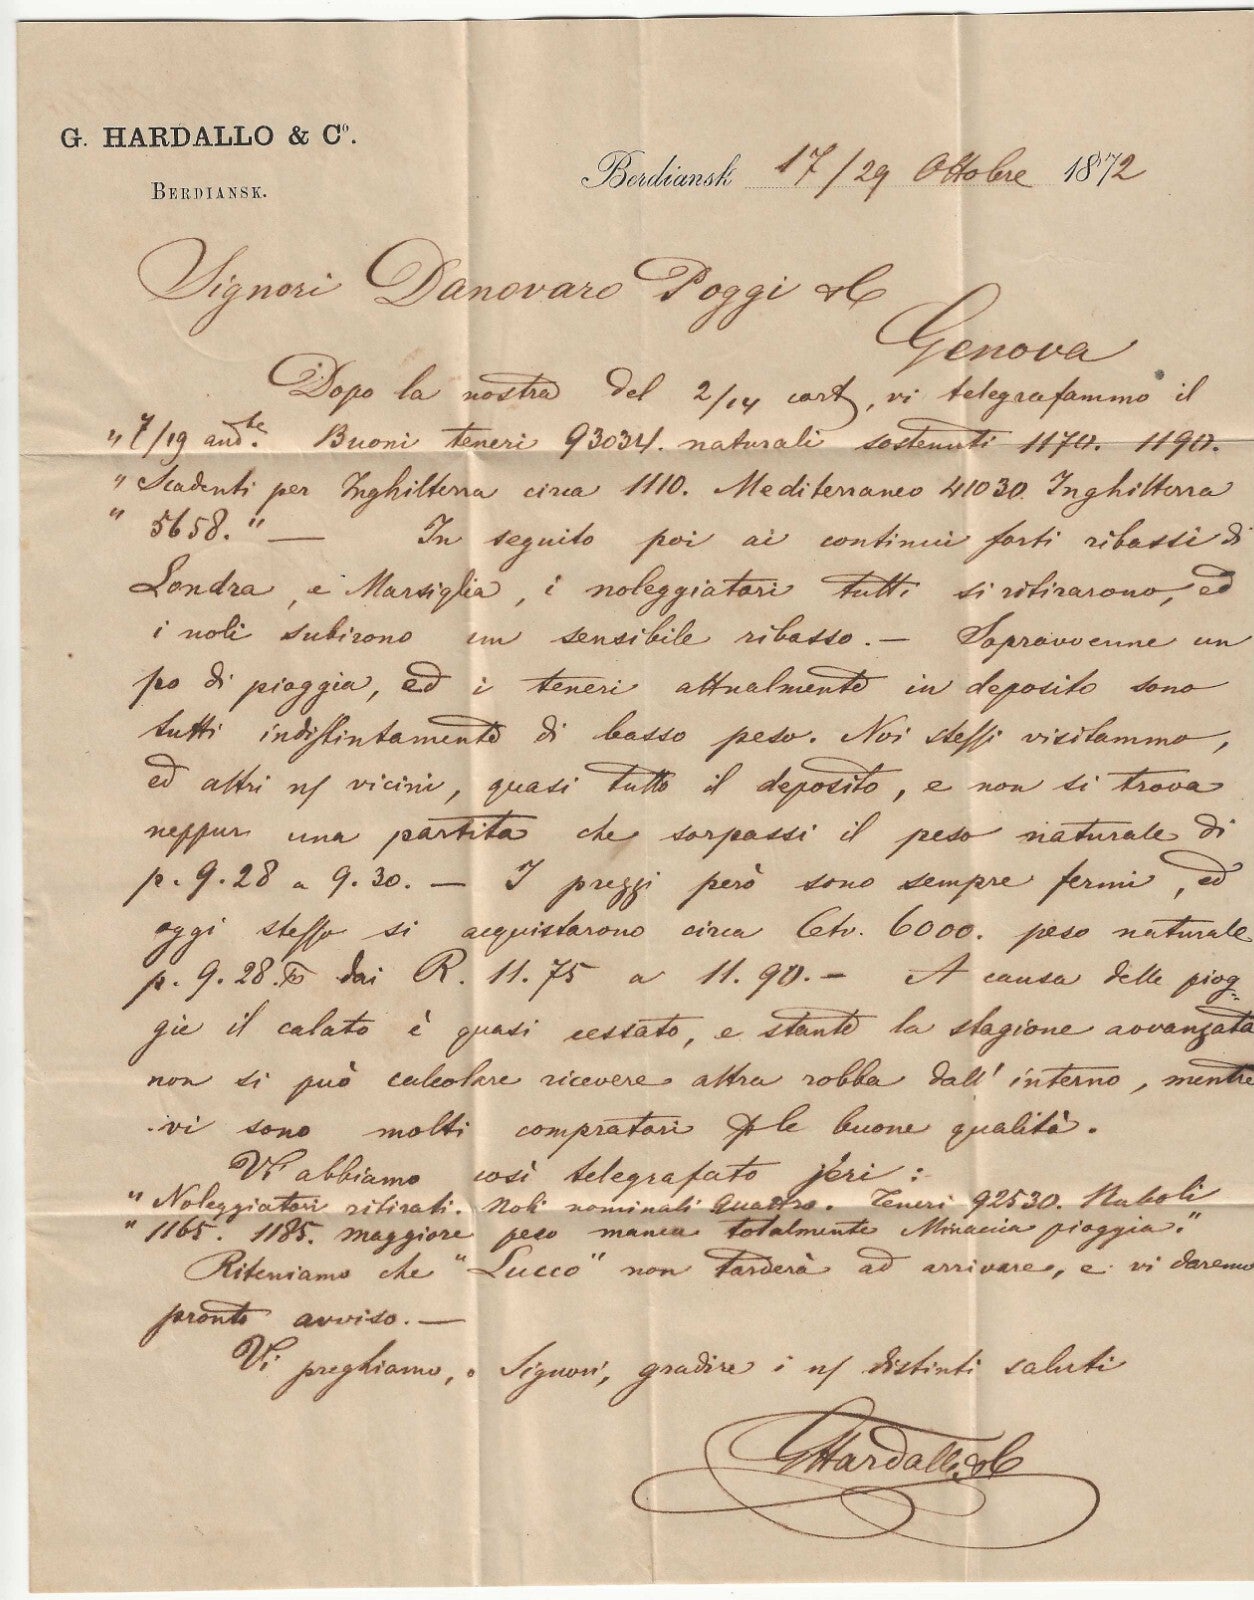 G. HARDALLO & Cº.
BERDIANSK.
Berdiansk 17/29 Ottobre 1872
Signori Danovaro Poggi & C
Genova
Dopo la nostra del 2/14 cort, vi telegrafammo il
" 7/19 andte. Buoni teneri 93034. naturali sostenuti 1170. 1190.
" Scadenti per Inghilterra circa 1110. Mediterraneo 41030 Inghilterra
" 5658." — In seguito poi ai continui forti ribassi di
Londra, e Marsiglia, i noleggiatori tutti si ritirarono, ed
i noli subirono un sensibile ribasso. — Sopravvenne un
po di pioggia, ed i teneri attualmente in deposito sono
tutti indistintamente di basso peso. Noi stessi visitammo,
ed altri n/ vicini, quasi tutto il deposito, e non si trova
neppur una partita che sorpassi il peso naturale di
p. 9.28 a 9.30. — I prezzi però sono sempre fermi, ed
oggi stesso si acquistarono circa Cetv. 6000. peso naturale
p. 9.28. dai R. 11.75 a 11.90. — A causa delle piog=
gie il calato è quasi cessato, e stante la stagione avvanzata
non si può calcolare ricevere altra robba dall' interno, mentre
vi sono molti compratori p le buone qualità.
Vi abbiamo così telegrafato jeri:
" Noleggiatori ritirati. Noli nominali quattro. Teneri 92530. Naboli
" 1165. 1185. maggiore peso manca totalmente Minaccia pioggia."
Riteniamo che "Lucco" non tarderà ad arrivare, e vi daremo
pronto avviso. —
Vi preghiamo, o Signori, gradire i n/ distinti saluti
GHardallo & C